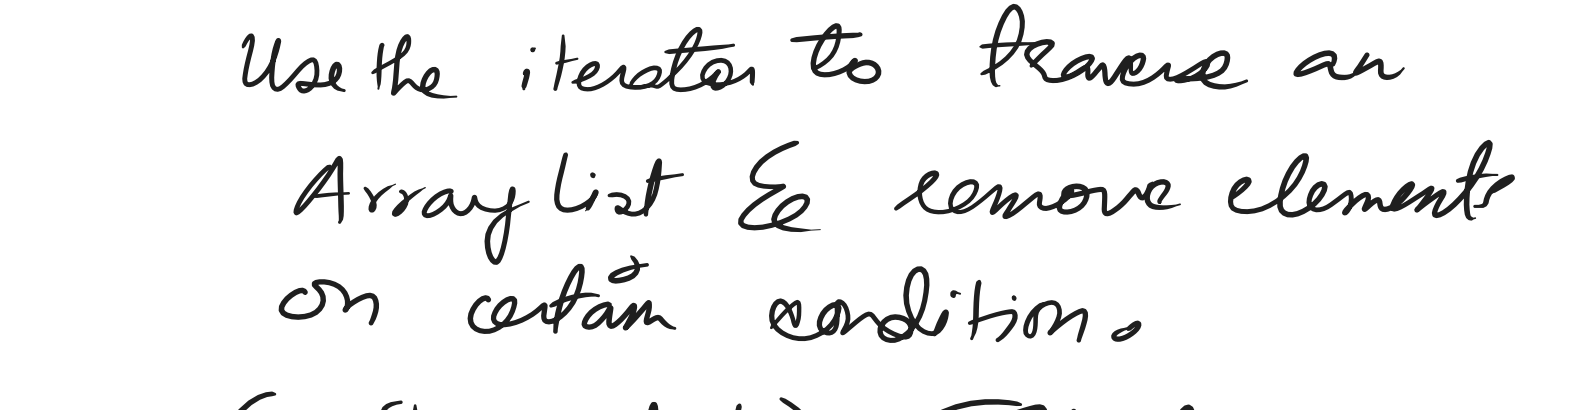 Use the iterator to traverse an
Array List & remove elements
on certain condition.